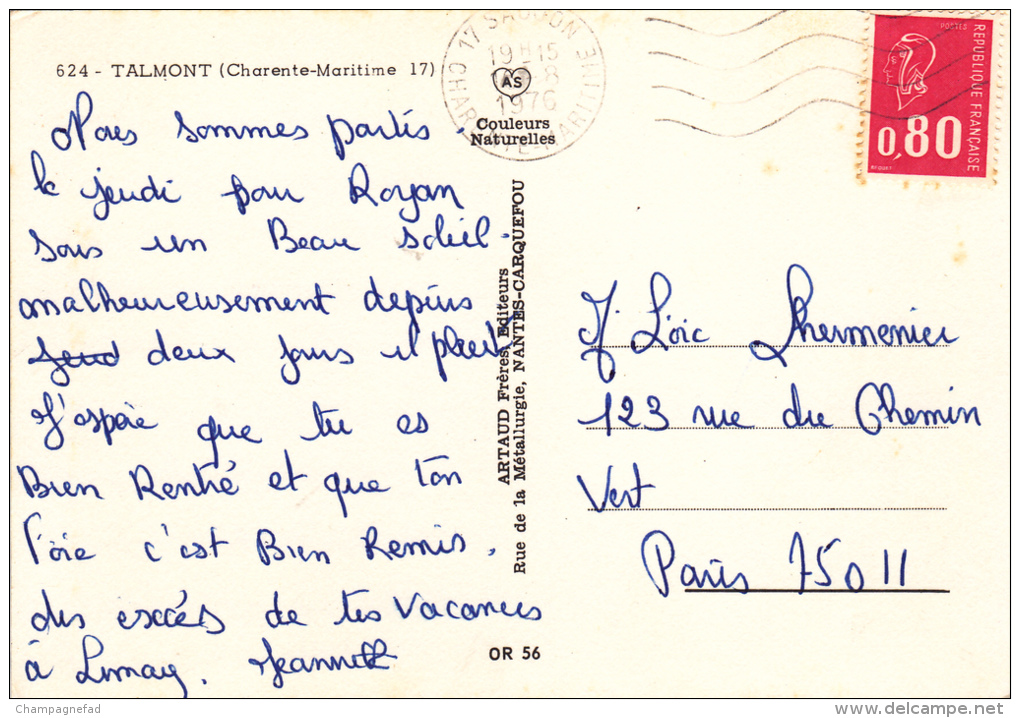 624 - TALMONT (Charente-Maritime 17)
17 SAUJON
19H15
8
1976
CHARENTE-MARITIME
AS
Couleurs
Naturelles
POSTES
REPUBLIQUE FRANÇAISE
0,80
BEQUET
Nous sommes partis
le jeudi pour Royan
sous un Beau soleil.
malheureusement depuis
jeud deux jours il pleut
J'espère que tu es
Bien Rentré et que ton
foie c'est Bien Remis.
des excès de tes vacances
à Limay. Jeannette
ARTAUD Frères, Editeurs
Rue de la Métallurgie, NANTES-CARQUEFOU
OR 56
Loïc Lhermenier
123 rue du Chemin
Vert
Paris 75011
Champagnefad
delcampe.net